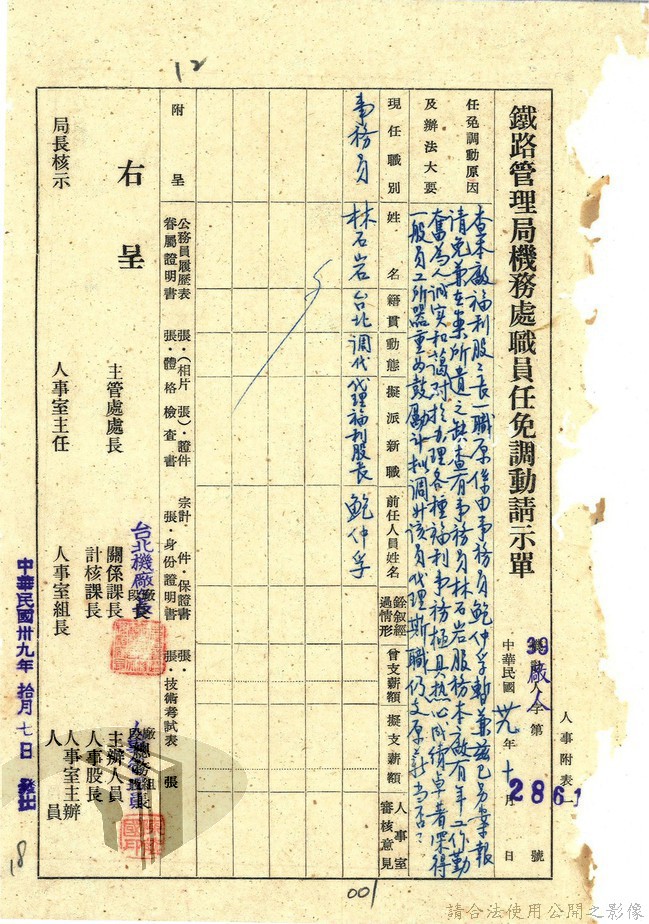 人事附表一
鐵路管理局機務處職員任免調動請示單
39 廠人字第 2861 號
中華民國卅九年十月 日
任免調動原因及辦法大要
查本廠福利股股長一職原係由事務員鮑仲孚暫兼茲已另案報
請免兼在案所遺之缺查有事務員林石岩服務本廠有年工作勤
奮為人誠实和藹对於办理各種福利事務極具热心成绩卓著深得
一般員工所器重為鼓勵計拟調升該員代理斯職仍支原薪当否?
現任職別
姓名
籍貫
動態
擬派新職
前任人員姓名
銓叙經過情形
曾支薪額
擬支薪額
人事室審核意見
事務員 林石岩 台北 调代 代理福利股長 鮑仲孚
附呈
公務員履歷表 張・(相片 張)・證件 宗計 件・保證書 張・
眷屬證明書 張・體格檢查書 張・身份證明書 張・技術考試表 張
右呈
主管處處長
關係課長
計核課長
台北機廠廠長
段長
廠總務組長
主辦人員
人事股長
局長核示
人事室主任
人事室組長
人事室主辦人員
中華民國卅九年拾月七日 發出
12
18
001
請合法使用公開之影像